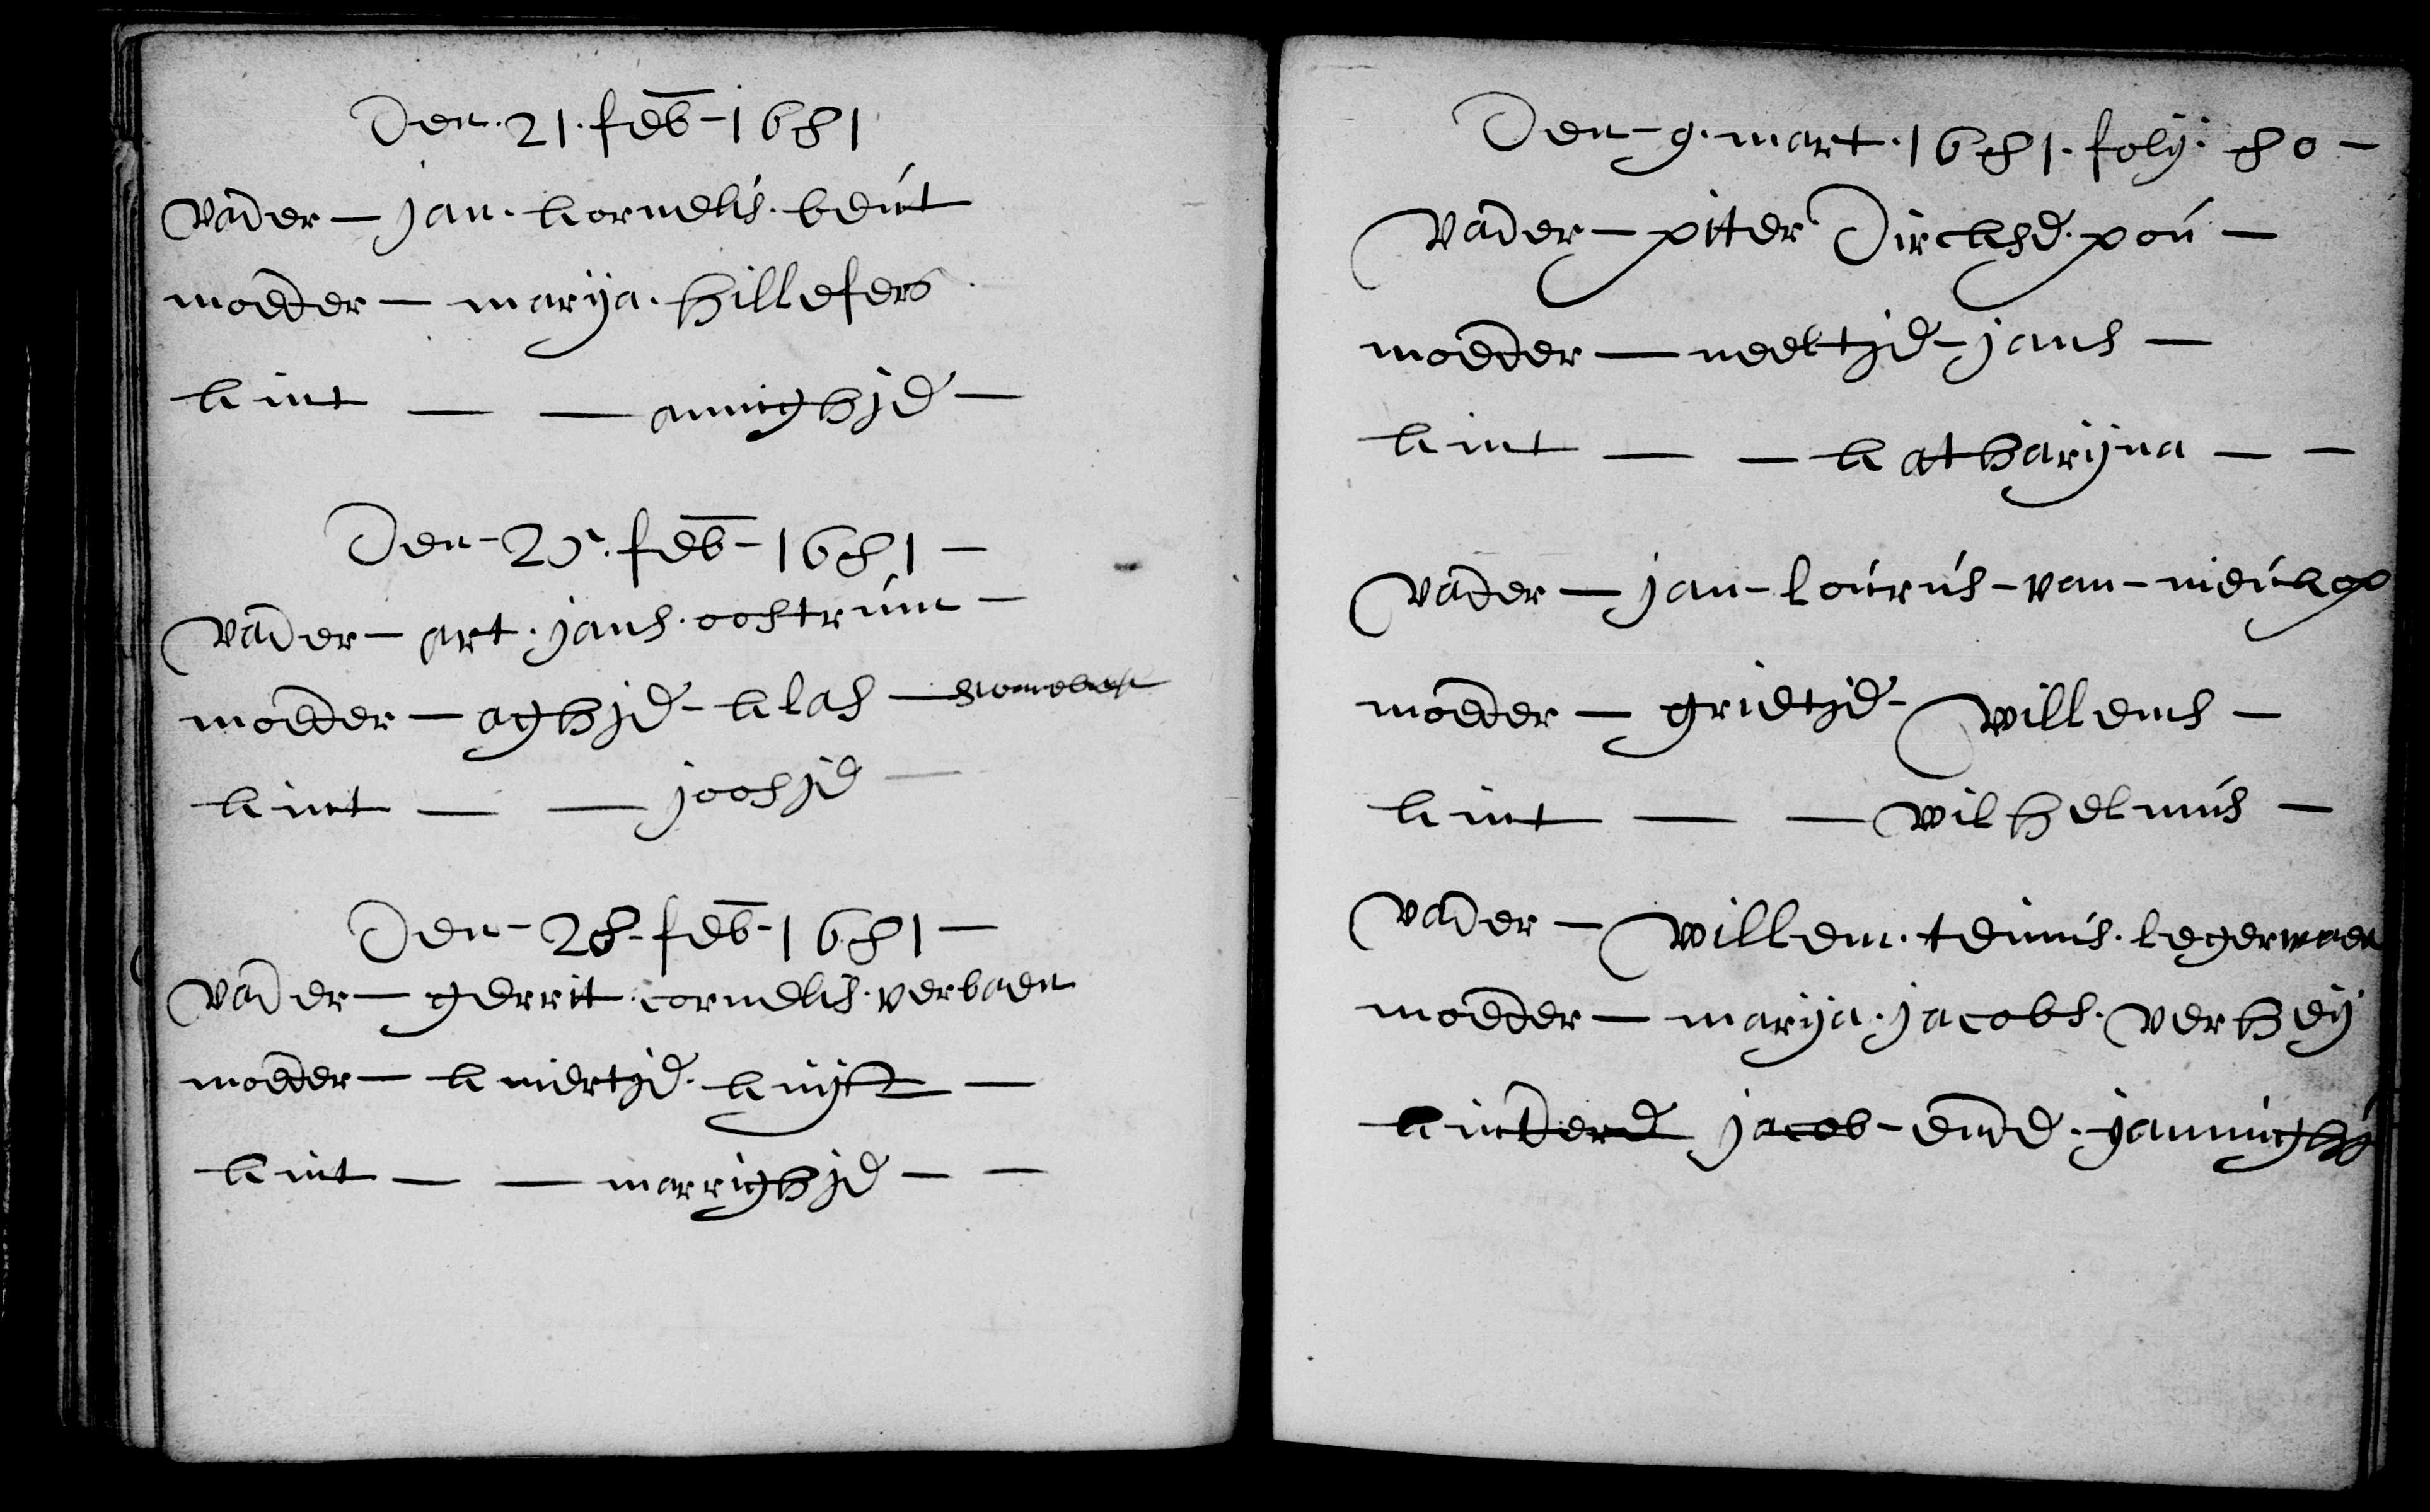 Den. 21. feb - 1681
vader - jan. kornelis. beut
moeder - marija. hillefers
kint — — annighje -
Den - 25. feb - 1681 -
vader - art. jans. oostrum -
moeder - aghje - klas -
kint — — joosje —
Den - 28 - feb - 1681 -
vader - gerrit. cornelis. verbaen
moeder - kniertje. knijft -
kint — — marrighje - -
Den - 9. mart. 1681. folij. 80 -
vader - pitter Dirckse. pou -
moeder — neeltje - jans -
kint — — katharijna - -
vader - jan - lourus - van - nieukop
moeder - grietje - willems -
kint — — wilhelmus -
vader - willem. teunis. legerwaen
moeder - marija. jacobs. verheij
kindere jacob - ende. jannighj